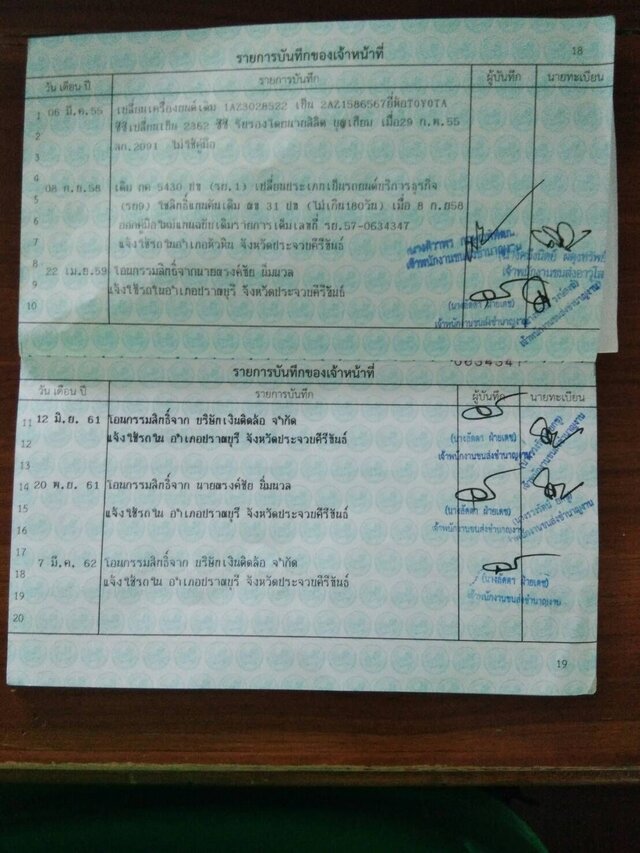 18
รายการบันทึกของเจ้าหน้าที่
วัน เดือน ปี รายการบันทึก ผู้บันทึก นายทะเบียน
1 06 มี.ค.55 เปลี่ยนเครื่องยนต์เดิม 1AZ3028522 เป็น 2AZ1586567ยี่ห้อTOYOTA
2 ซีซีเปลี่ยนเป็น 2362 ซีซี รับรองโดยนายลิลิต บุญเทียม เมื่อ29 ก.พ.55
3 ลก.2091 ไม่ใช้คู่มือ
4
5 08 ก.ย.58 เดิม กต 5430 ปข (รย.1) เปลี่ยนประเภทเป็นรถยนต์บริการธุรกิจ
6 (รย9) ใช้สิทธิ์แทนคันเดิม ฌข 31 ปข (ไม่เกิน180วัน) เมื่อ 8 ก.ย58
7 ออกคู่มือใหม่แทนฉบับเดิมรายการเต็มเลขที่ รย.57-0634347
แจ้งใช้รถในอำเภอหัวหิน จังหวัดประจวบคีรีขันธ์
เจ้าพนักงานขนส่งชำนาญงาน
เจ้าพนักงานขนส่งอาวุโส
22 เม.ย.59 โอนกรรมสิทธิ์จากนายณรงค์ชัย นิ่มนวล
แจ้งใช้รถในอำเภอปราณบุรี จังหวัดประจวบคีรีขันธ์
10
(นางลัดดา ฝ่ายเดช)
เจ้าพนักงานขนส่งชำนาญงาน
เจ้าพนักงานขนส่งชำนาญงาน
0634347
รายการบันทึกของเจ้าหน้าที่
วัน เดือน ปี รายการบันทึก ผู้บันทึก นายทะเบียน
11 12 มิ.ย. 61 โอนกรรมสิทธิ์จาก บริษัท เงินติดล้อ จำกัด
12 แจ้งใช้รถใน อำเภอปราณบุรี จังหวัดประจวบคีรีขันธ์
13
(นางลัดดา ฝ่ายเดช)
เจ้าพนักงานขนส่งชำนาญงาน
14 20 พ.ย. 61 โอนกรรมสิทธิ์จาก นายณรงค์ชัย นิ่มนวล
15
16 แจ้งใช้รถใน อำเภอปราณบุรี จังหวัดประจวบคีรีขันธ์
(นางลัดดา ฝ่ายเดช)
เจ้าพนักงานขนส่งชำนาญงาน
17 7 มี.ค. 62 โอนกรรมสิทธิ์จาก บริษัท เงินติดล้อ จำกัด
18 แจ้งใช้รถใน อำเภอปราณบุรี จังหวัดประจวบคีรีขันธ์
19
20
(นางลัดดา ฝ่ายเดช)
เจ้าพนักงานขนส่งชำนาญงาน
19